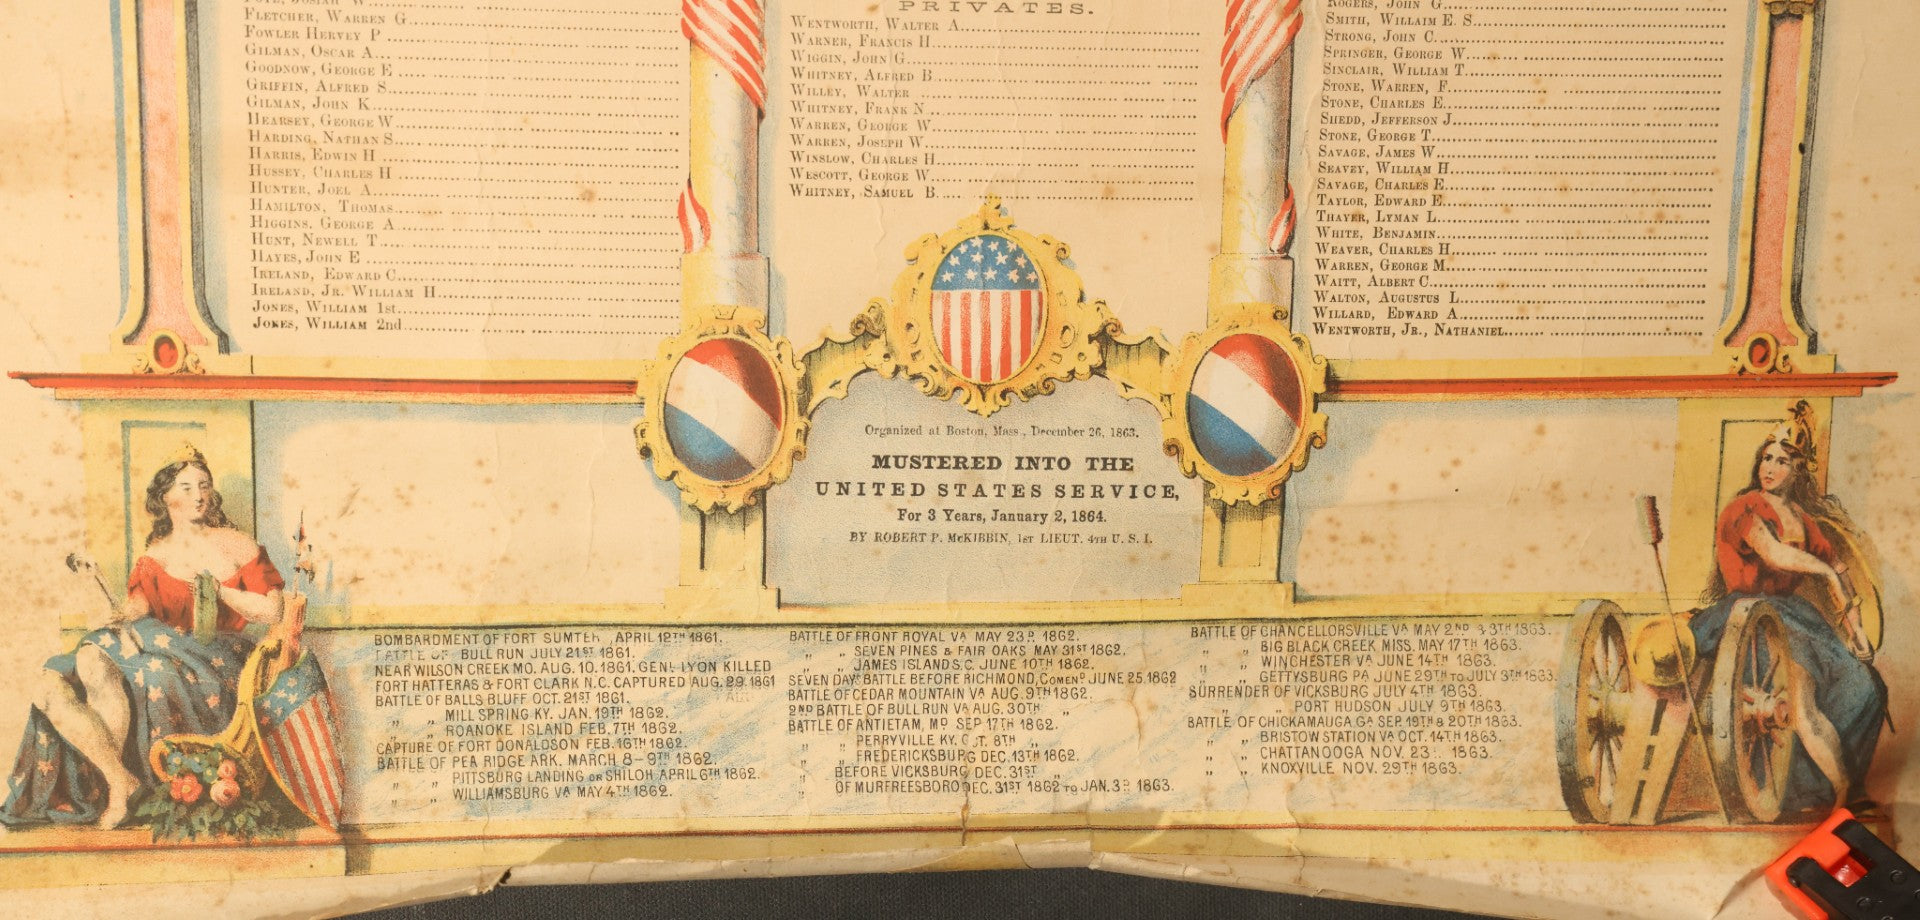 Fletcher, Warren G
Fowler Hervey P
Gilman, Oscar A
Goodnow, George E
Griffin, Alfred S
Gilman, John K
Hearsey, George W
Harding, Nathan S
Harris, Edwin H
Hussey, Charles H
Hunter, Joel A
Hamilton, Thomas
Higgins, George A
Hunt, Newell T
Hayes, John E
Ireland, Edward C
Ireland, Jr. William H
Jones, William 1st
Jones, William 2nd
PRIVATES.
Wentworth, Walter A
Warner, Francis H
Wiggin, John G
Whitney, Alfred B
Willey, Walter
Whitney, Frank N
Warren, George W
Warren, Joseph W
Winslow, Charles H
Wescott, George W
Whitney, Samuel B
Rogers, John G
Smith, Willaim E. S
Strong, John C
Springer, George W
Sinclair, William T
Stone, Warren, F
Stone, Charles E
Shedd, Jefferson J
Stone, George T
Savage, James W
Seavey, William H
Savage, Charles E
Taylor, Edward E
Thayer, Lyman L
White, Benjamin
Weaver, Charles H
Warren, George M
Waitt, Albert C
Walton, Augustus L
Willard, Edward A
Wentworth, Jr., Nathaniel
Organized at Boston, Mass., December 26, 1863.
MUSTERED INTO THE
UNITED STATES SERVICE,
For 3 Years, January 2, 1864.
BY ROBERT P. McKIBBIN, 1st LIEUT. 4th U. S. I.
BOMBARDMENT OF FORT SUMTER, APRIL 12TH 1861.
BATTLE OF BULL RUN JULY 21ST 1861.
NEAR WILSON CREEK MO. AUG. 10. 1861. GENL LYON KILLED
FORT HATTERAS & FORT CLARK N.C. CAPTURED AUG. 29. 1861
BATTLE OF BALLS BLUFF OCT. 21ST 1861.
" " MILL SPRING KY. JAN. 19TH 1862.
" " ROANOKE ISLAND FEB. 7TH 1862.
CAPTURE OF FORT DONALDSON FEB. 16TH 1862.
BATTLE OF PEA RIDGE ARK. MARCH 8-9TH 1862.
" " PITTSBURG LANDING OR SHILOH APRIL 6TH 1862.
" " WILLIAMSBURG VA MAY 4TH 1862.
BATTLE OF FRONT ROYAL VA MAY 23D. 1862.
" " SEVEN PINES & FAIR OAKS MAY 31ST 1862.
" " JAMES ISLAND S.C. JUNE 10TH 1862.
SEVEN DAYS BATTLE BEFORE RICHMOND, COMEND JUNE 25. 1862
BATTLE OF CEDAR MOUNTAIN VA AUG. 9TH 1862.
2ND BATTLE OF BULL RUN VA AUG. 30TH "
BATTLE OF ANTIETAM, MD SEP 17TH 1862.
" " PERRYVILLE KY. OCT. 8TH "
" " FREDERICKSBURG DEC. 13TH 1862.
" BEFORE VICKSBURG DEC. 31ST "
" OF MURFREESBORO DEC. 31ST 1862 TO JAN. 3D 1863.
BATTLE OF CHANCELLORSVILLE VA MAY 2ND & 3TH 1863.
" " BIG BLACK CREEK MISS. MAY 17TH 1863.
" " WINCHESTER VA JUNE 14TH 1863.
" " GETTYSBURG PA JUNE 29TH TO JULY 3TH 1863.
SURRENDER OF VICKSBURG JULY 4TH 1863.
" " PORT HUDSON JULY 9TH 1863.
BATTLE OF CHICKAMAUGA GA SEP. 19TH & 20TH 1863.
" " BRISTOW STATION VA OCT. 14TH 1863.
" " CHATTANOOGA NOV. 23 1863.
" " KNOXVILLE NOV. 29TH 1863.